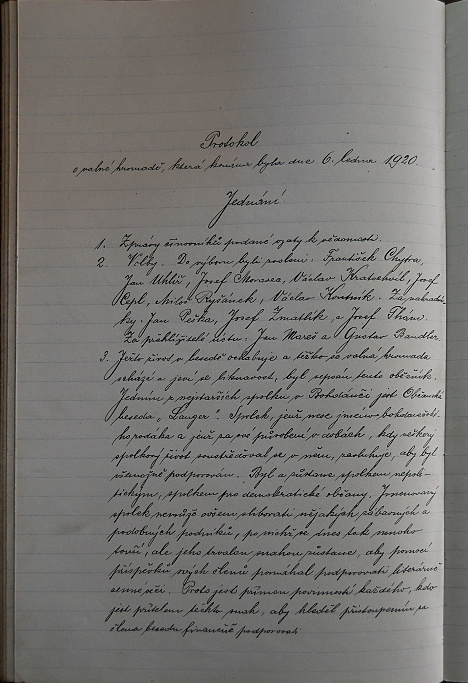 Protokol
o valné hromadě, která konána byla dne 6. ledna 1920.
Jednání.
1. Zprávy činovníků podané vzaty k vědomosti.
2. Volby. Do výboru byli zvoleni: František Chytra,
Jan Uhlíř, Josef Morávea, Václav Kratochvil, Josef
Cepl, Miloš Ryšánek, Václav Koutník. Za náhradní-
ky: Jan Peška, Josef Zmatlík, a Josef Thám.
Za přehlížitele účtů: Jan Mareš a Gustav Bandler.
3. Ježto život v besedě ochabuje a těžko se valná hromada
schází a jeví se liknavost, byl sepsán tento oběžník.
Jedním z nejstarších spolků v Bohdanči jest Občanská
beseda „Langer". Spolek, jenž nese jméno bohdanečs-
ho rodáka a jenž za své působení v dobách, kdy veškerý
spolkový život soustřeďoval se v něm, zasluhuje, aby byl
všemožně podporován. Byl a zůstane spolkem nepoli-
tickým, spolkem pro demokratické občany. Jmenovaný
spolek nemůže ovšem slibovati nějakých zábavných a
podobných podniků, po nichž se dnes tak mnoho
touží, ale jeho trvalou snahou zůstane, aby pomocí
příspěvků svých členů pomáhal podporovati literárně
cenné věci. Proto jest přímou povinností každého, kdo
jest přítelem těchto snah, aby hleděl přistoupením za
člena besedu finančně podporovati